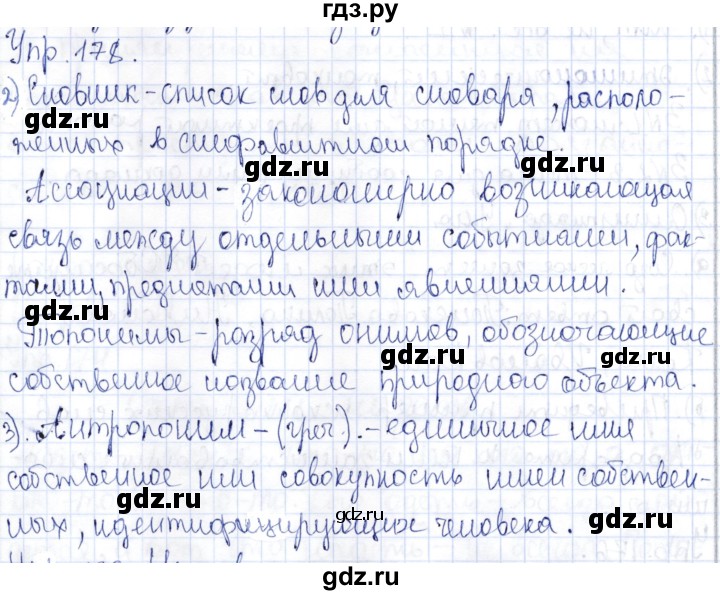 гдз.ру
Упр. 178.
2) Словник - список слов для словаря, располо-
gdz.ru gdz.ru
женных в алфавитном порядке.
Ассоциации - закономерно возникающая
gdz.ru
связь между отдельными событиями, фак-
тами, предметами или явлениями.
gdz.ru
Топонимы - разряд онимов, обозначающие
gdz.ru
собственное название природного объекта.
gdz.ru
3). Антропоним - (греч.). - единичное имя
gdz.ru
собственное или совокупность имен собствен-
gdz.ru
ных, идентифицирующие человека.
gdz.ru
gdz.ru